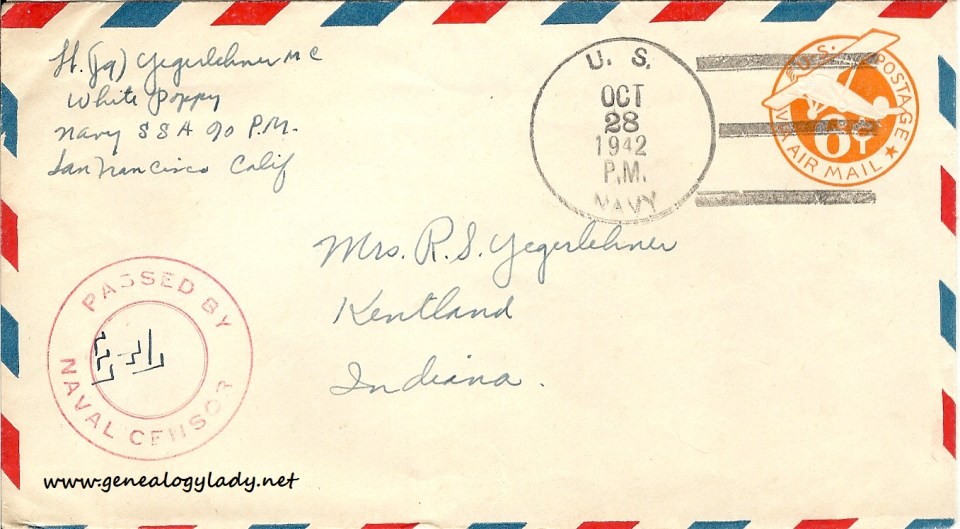 Lt. (jg) Yegerlehner MC
White Poppy
Navy S S A 90 P.M.
San Francisco Calif
U. S.
OCT
28
1942
P.M.
NAVY
U.S. POSTAGE
6¢
VIA AIR MAIL
Mrs. R. S. Yegerlehner
Kentland
Indiana.
PASSED BY
NAVAL CENSOR
www.genealogylady.net